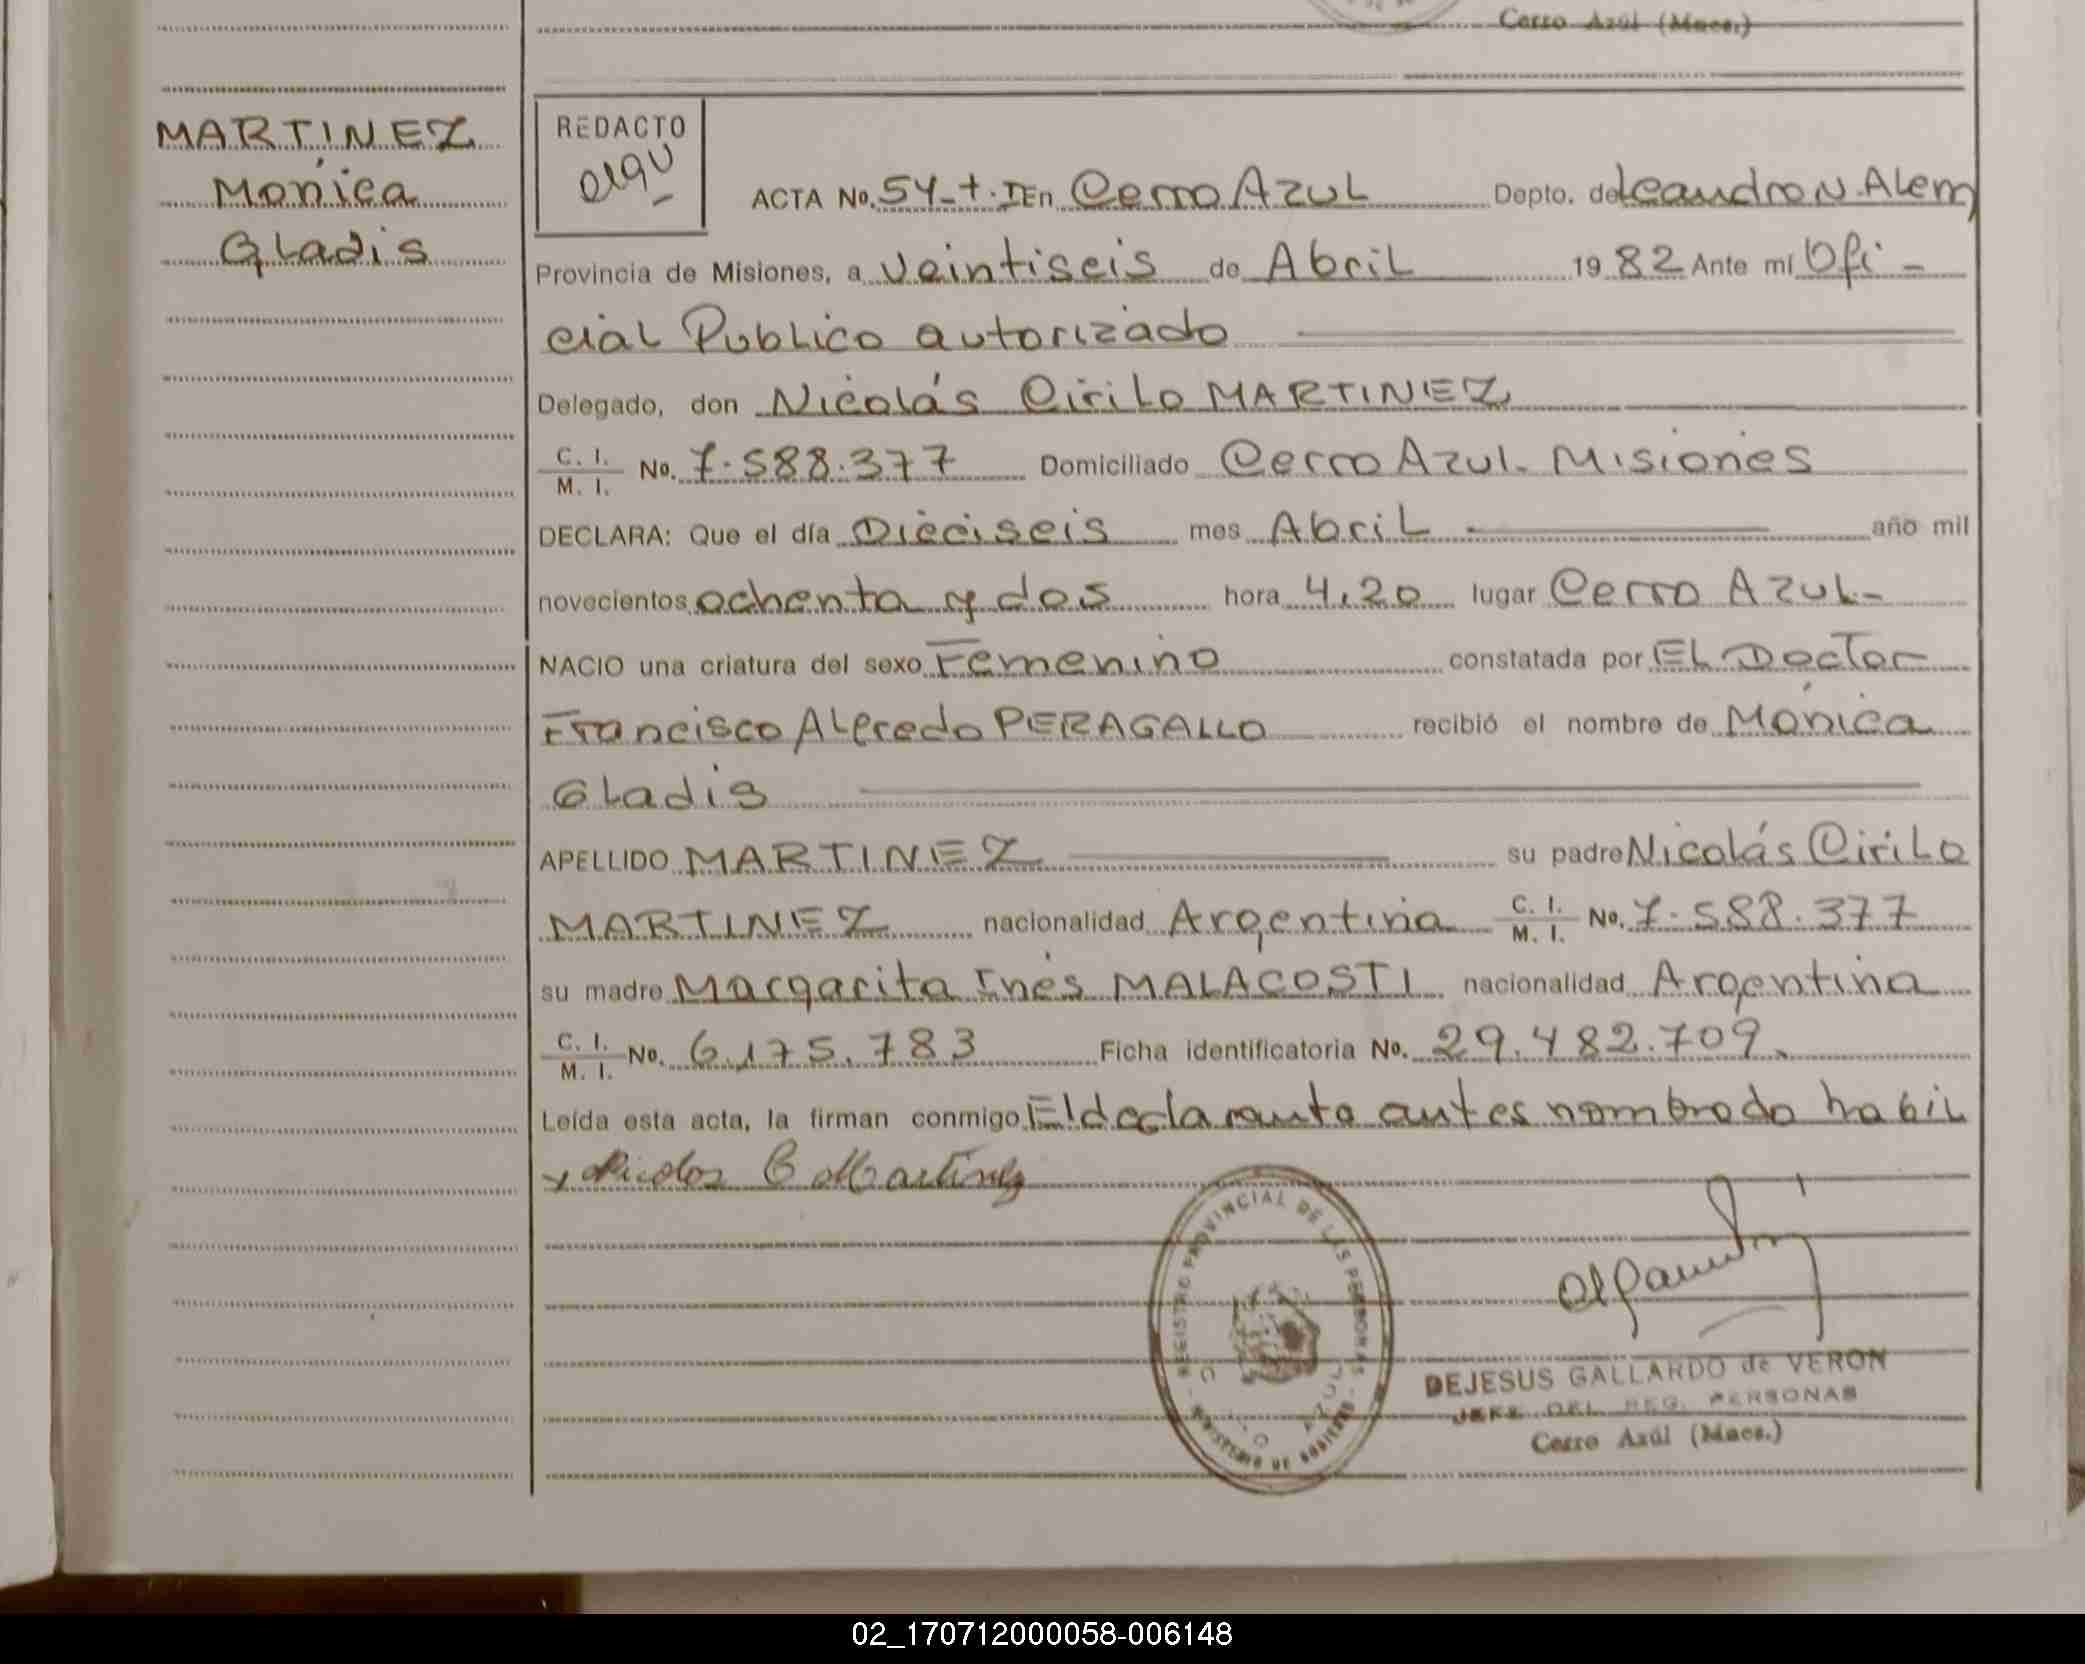 Cerro Azúl (Mnes.)
MARTINEZ
Mónica
Gladis
REDACTO
ACTA No. 54-T.I En Cerro Azul Depto. de Leandro N. Alem
Provincia de Misiones, a Veintiseis de Abril 1982 Ante mí Ofi-
cial Publico autorizado
Delegado, don Nicolás Cirilo MARTINEZ
C. I. / M. I. No. 7.588.377 Domiciliado Cerro Azul. Misiones
DECLARA: Que el día Dieciseis mes Abril año mil
novecientos ochenta y dos hora 4,20 lugar Cerro Azul-
NACIO una criatura del sexo Femenino constatada por El Doctor
Francisco Alfredo PERAGALLO recibió el nombre de Mónica
Gladis
APELLIDO MARTINEZ su padre Nicolás Cirilo
MARTINEZ nacionalidad Argentina C. I. / M. I. No. 7.588.377
su madre Margarita Inés MALACOSTI nacionalidad Argentina
C. I. / M. I. No. 6.175.783 Ficha identificatoria No. 29.482.709.
Leída esta acta, la firman conmigo El declarante antes nombrado habil
x Nicolas C Martinez
REGISTRO PROVINCIAL DE LAS PERSONAS
MINISTERIO DE GOBIERNO
DEJESUS GALLARDO de VERON
JEFE DEL REG. PERSONAS
Cerro Azúl (Mnes.)
02_170712000058-006148